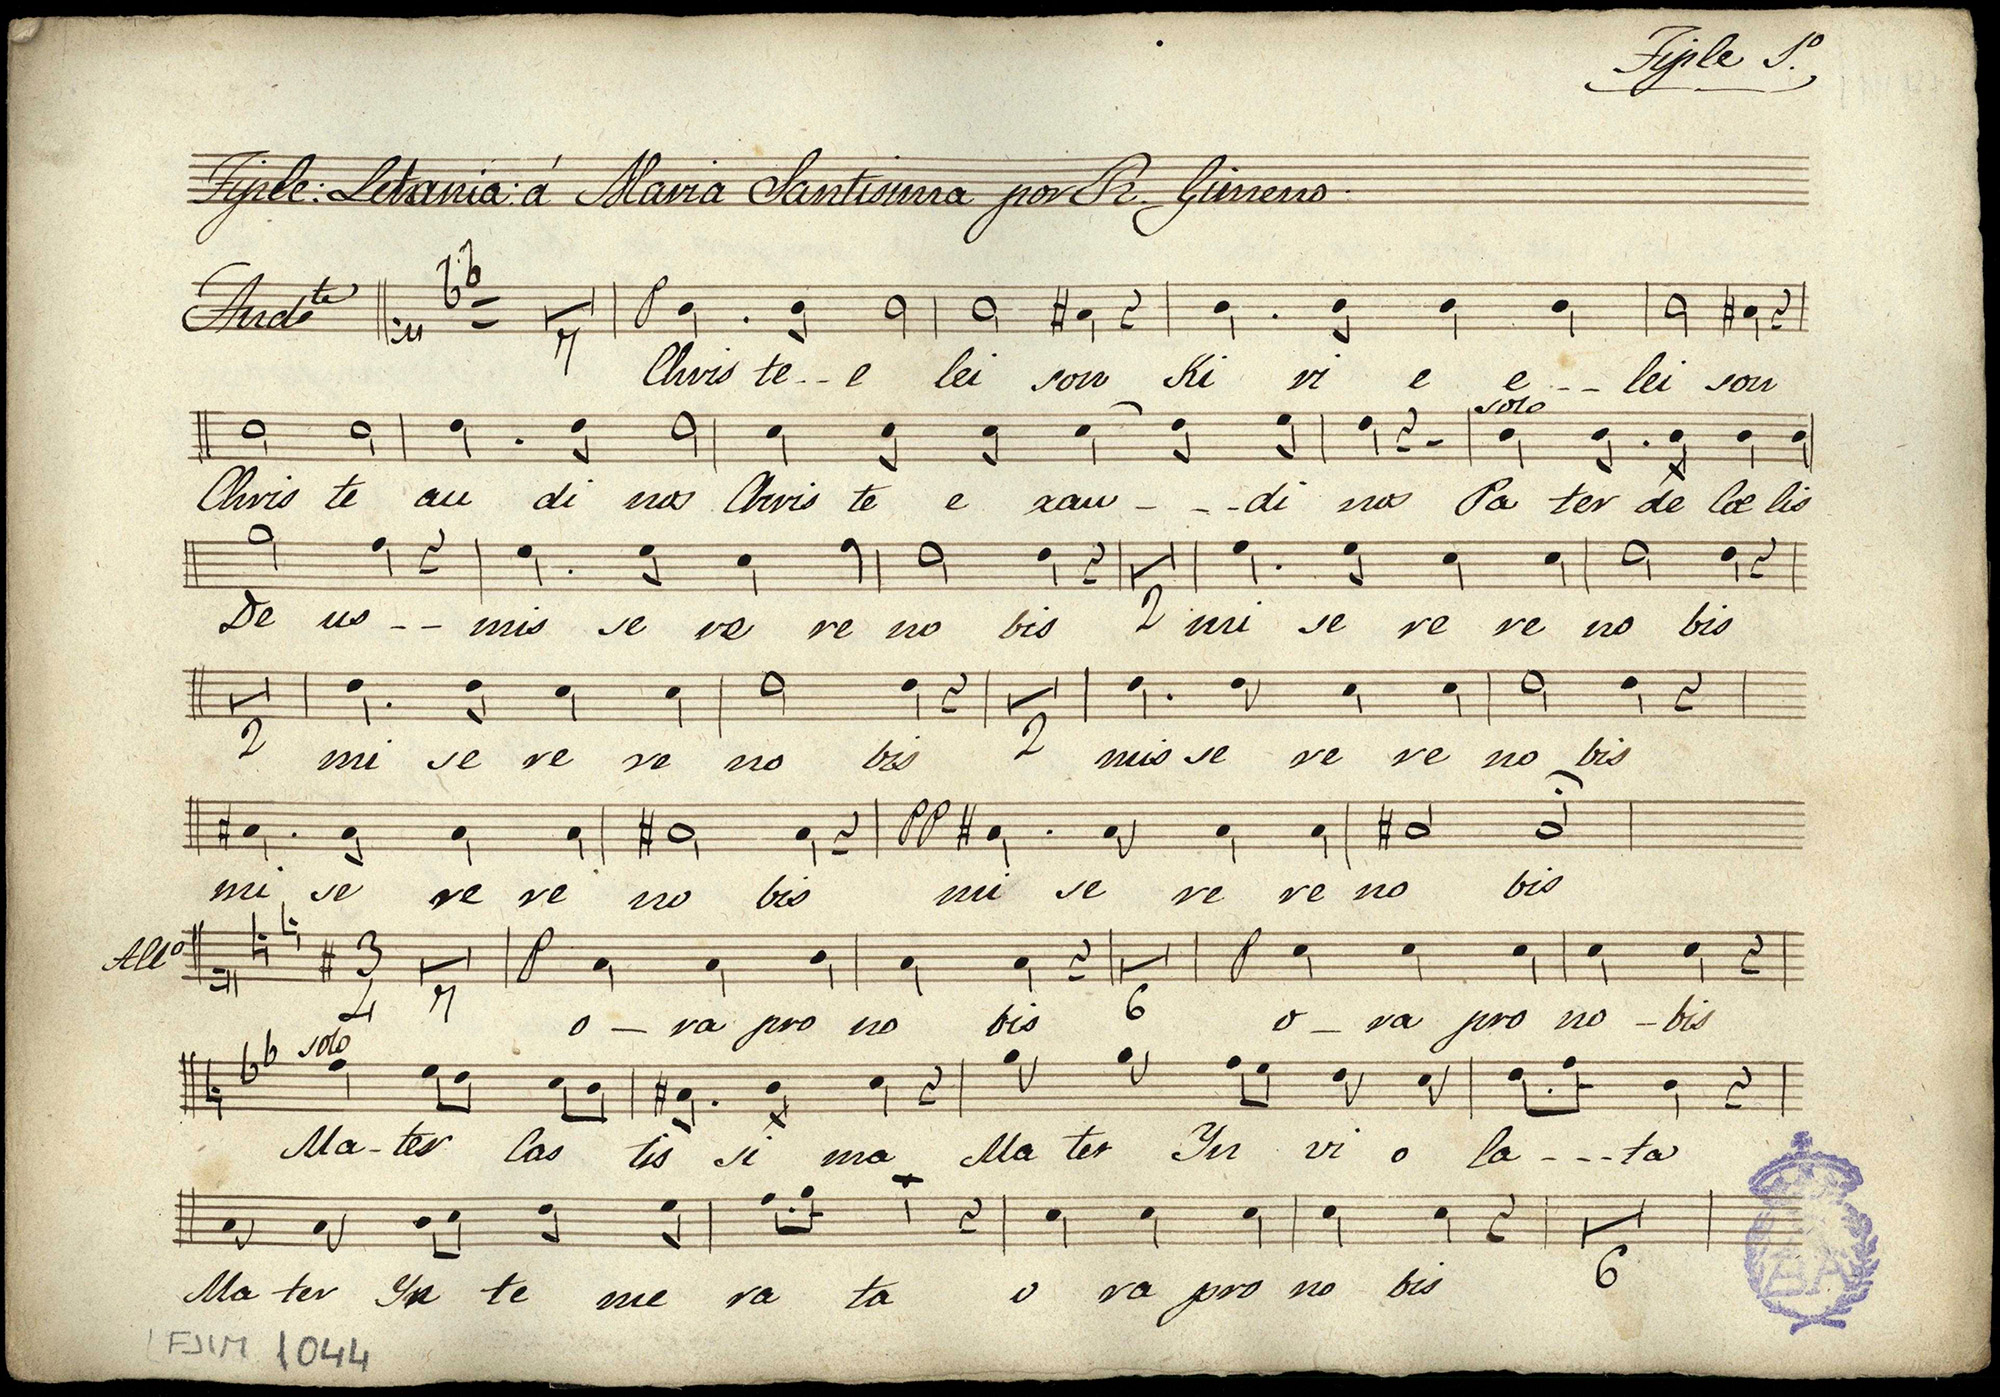 Tiple 1º
Tiple: Letania: á Maria Santisima por R. Gimeno.
Andte 7 P
Chris te -- e lei son Ki ri e e -- lei son
solo
Chris te au di nos Chris te e xau - - - di nos Pa ter de Cœ lis
De us -- mis se re re no bis 2 mi se re re no bis
2 mi se re re no bis 2 mis se re re no bis
PP
mi se re re no bis mi se re re no bis
Allº 3 4 7 P 6 P
o - ra pro no bis o - ra pro no - bis
solo
Ma - ter Cas tis si ma Ma ter Yn vi o la - - - ta
Ma ter Yn te me ra ta o ra pro no bis 6
1044